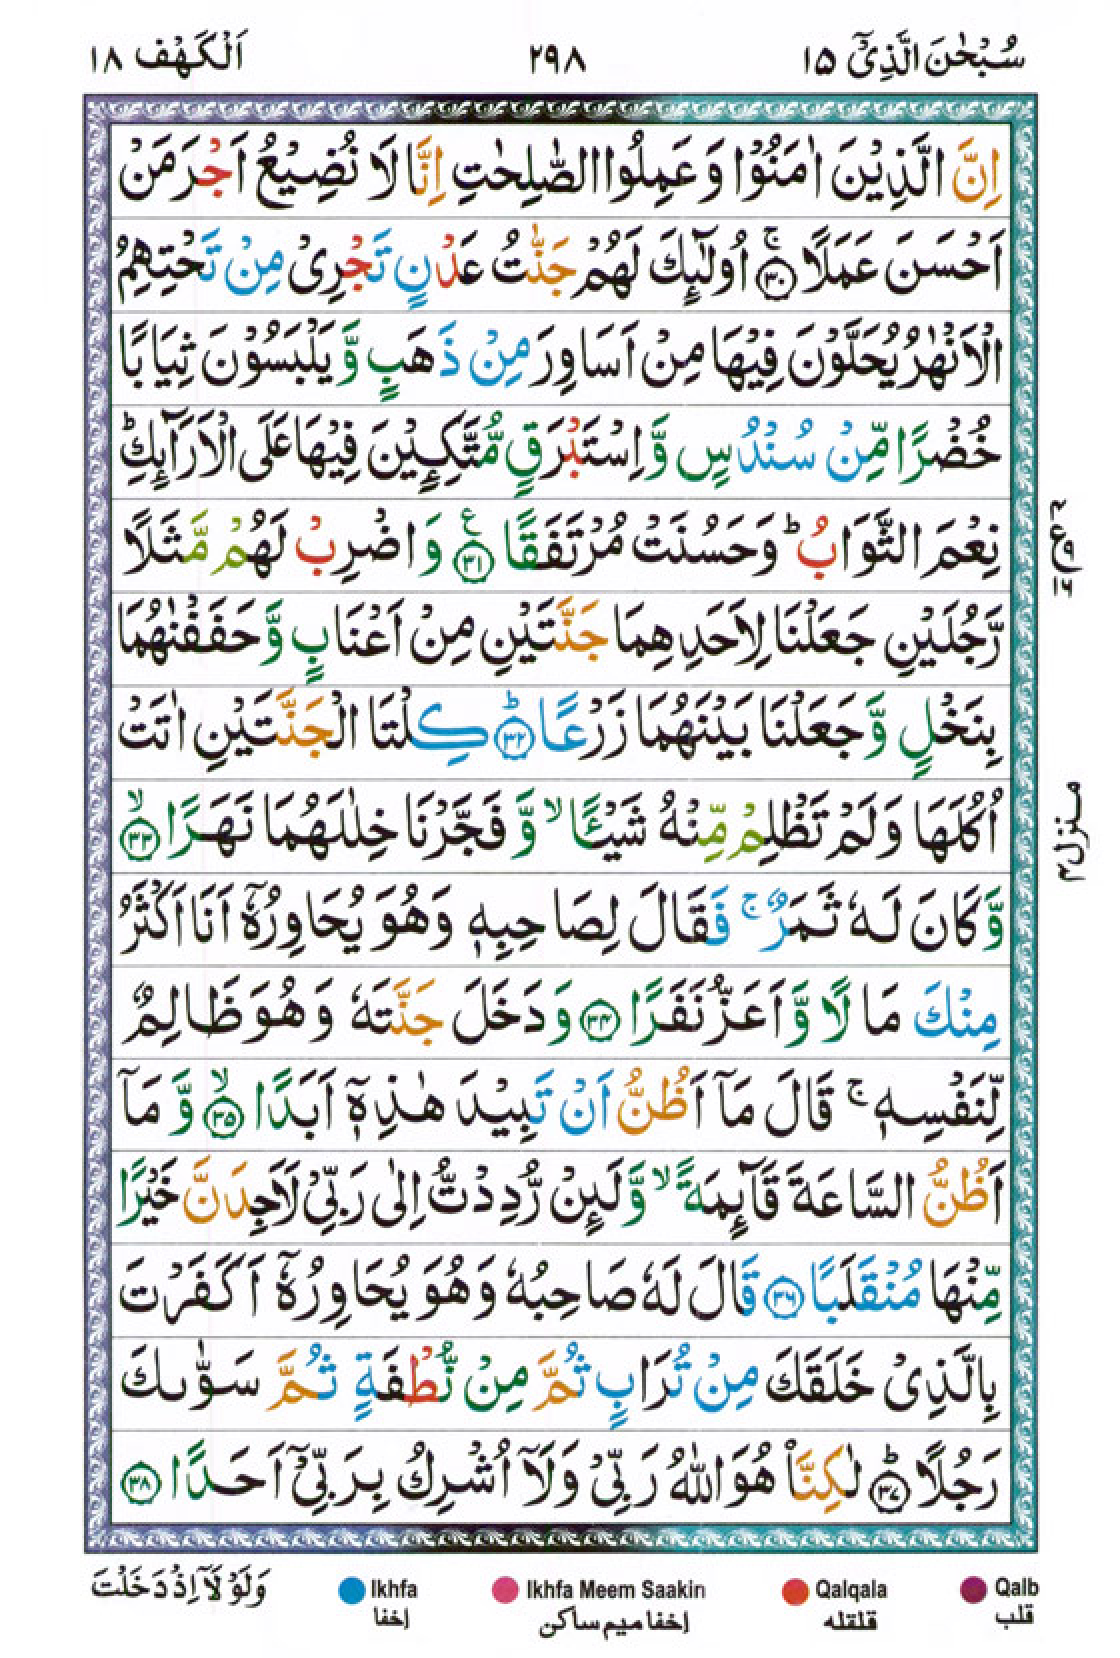 سُبْحٰنَ الَّذِیْۤ ۱۵ ۲۹۸ اَلْكَهْف ۱۸
اِنَّ الَّذِیْنَ اٰمَنُوْا وَ عَمِلُوا الصّٰلِحٰتِ اِنَّا لَا نُضِیْعُ اَجْرَ مَنْ
اَحْسَنَ عَمَلًا ۚ‏﴿۳۰﴾ اُولٰٓىِٕكَ لَهُمْ جَنّٰتُ عَدْنٍ تَجْرِیْ مِنْ تَحْتِهِمُ
الْاَنْهٰرُ یُحَلَّوْنَ فِیْهَا مِنْ اَسَاوِرَ مِنْ ذَهَبٍ وَّ یَلْبَسُوْنَ ثِیَابًا
خُضْرًا مِّنْ سُنْدُسٍ وَّ اِسْتَبْرَقٍ مُّتَّكِـِٕیْنَ فِیْهَا عَلَی الْاَرَآىِٕكِ ؕ
نِعْمَ الثَّوَابُ ؕ وَ حَسُنَتْ مُرْتَفَقًا ﴿۳۱﴾ ع وَ اضْرِبْ لَهُمْ مَّثَلًا
رَّجُلَیْنِ جَعَلْنَا لِاَحَدِهِمَا جَنَّتَیْنِ مِنْ اَعْنَابٍ وَّ حَفَفْنٰهُمَا
بِنَخْلٍ وَّ جَعَلْنَا بَیْنَهُمَا زَرْعًا ؕ﴿۳۲﴾ كِلْتَا الْجَنَّتَیْنِ اٰتَتْ
اُكُلَهَا وَ لَمْ تَظْلِمْ مِّنْهُ شَیْـًٔا ۙ وَّ فَجَّرْنَا خِلٰلَهُمَا نَهَرًا ۙ﴿۳۳﴾
وَّ كَانَ لَهٗ ثَمَرٌ ۚ فَقَالَ لِصَاحِبِهٖ وَ هُوَ یُحَاوِرُهٗۤ اَنَا اَكْثَرُ
مِنْكَ مَالًا وَّ اَعَزُّ نَفَرًا ﴿۳۴﴾ وَ دَخَلَ جَنَّتَهٗ وَ هُوَ ظَالِمٌ
لِّنَفْسِهٖ ۚ قَالَ مَاۤ اَظُنُّ اَنْ تَبِیْدَ هٰذِهٖۤ اَبَدًا ۙ﴿۳۵﴾ وَّ مَاۤ
اَظُنُّ السَّاعَةَ قَآىِٕمَةً ۙ وَّ لَىِٕنْ رُّدِدْتُّ اِلٰی رَبِّیْ لَاَجِدَنَّ خَیْرًا
مِّنْهَا مُنْقَلَبًا ﴿۳۶﴾ قَالَ لَهٗ صَاحِبُهٗ وَ هُوَ یُحَاوِرُهٗۤ اَكَفَرْتَ
بِالَّذِیْ خَلَقَكَ مِنْ تُرَابٍ ثُمَّ مِنْ نُّطْفَةٍ ثُمَّ سَوّٰىكَ
رَجُلًا ؕ﴿۳۷﴾ لٰكِنَّاۡ هُوَ اللّٰهُ رَبِّیْ وَ لَاۤ اُشْرِكُ بِرَبِّیْۤ اَحَدًا ﴿۳۸﴾
منزل۴
وَ لَوْ لَاۤ اِذْ دَخَلْتَ
Ikhfa Ikhfa Meem Saakin Qalqala Qalb
إخفا إخفا ميم ساكن قلقله قلب